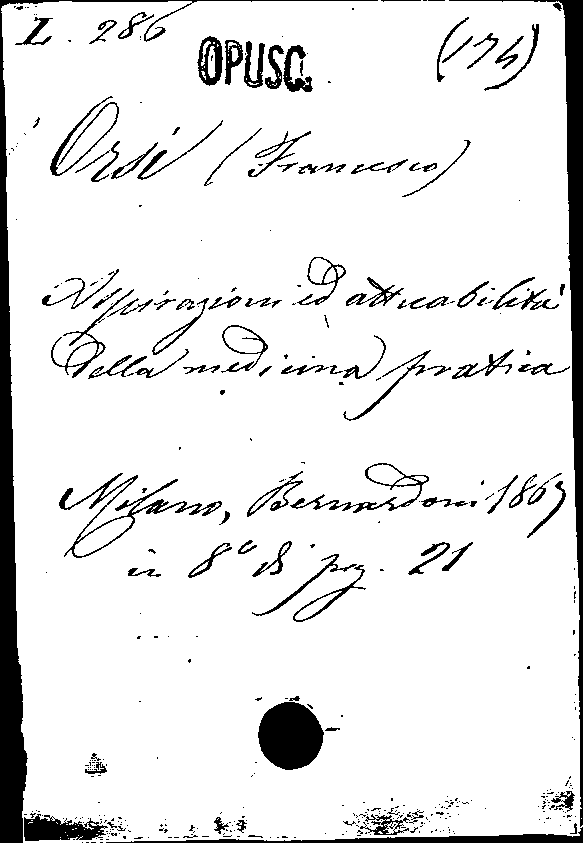 L. 286
OPUSC. (174)
Orsi (Francesco)
Aspirazioni ed attuabilità
della medicina pratica
Milano, Bernardoni 1867
in 8° di pag. 21